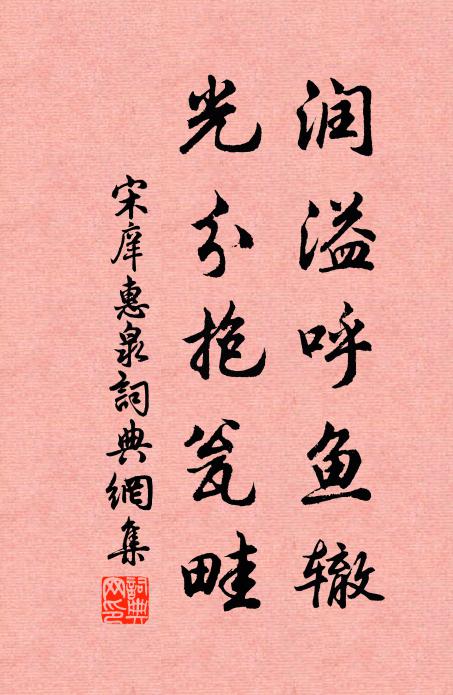 润溢呼鱼辙
光分抱瓮畦
宋庠惠泉詞典網集
詞典
网印